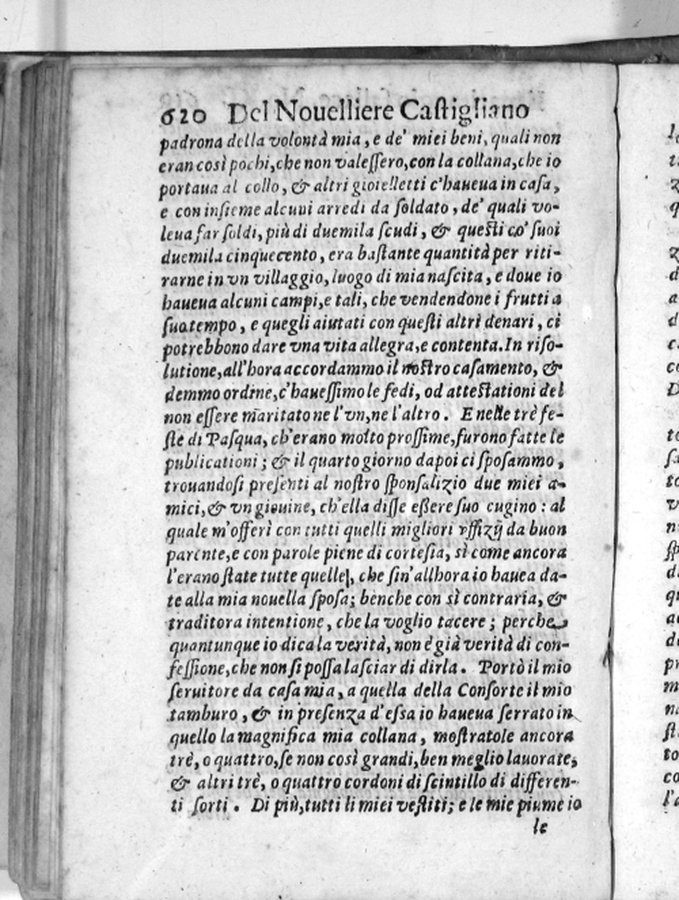 620 Del Nouelliere Castigliano
padrona della volontà mia, e de' miei beni, quali non
eran così pochi, che non valeſſero, con la collana, che io
portaua al collo, & altri gioielletti c'haueua in caſa,
e con inſieme alcuni arredi da ſoldato, de' quali vo-
leua far ſoldi, più di duemila ſcudi, & queſti cō' ſuoi
duemila cinquecento, era baſtante quantità per riti-
rarne in vn villaggio, luogo di mia naſcita, e doue io
haueua alcuni campi, e tali, che vendendone i frutti a
ſuo tempo, e quegli aiutati con queſti altri denari, ci
potrebbono dare vna vita allegra, e contenta. In riſo-
lutione, all'hora accordammo il noſtro caſamento, &
demmo ordine, c'haueſſimo le fedi, od atteſtationi del
non eſſere maritato ne l'vn, ne l'altro. E nelle trè fe-
ſte di Paſqua, ch'erano molto proſſime, furono fatte le
publicationi; & il quarto giorno dapoi ci ſpoſammo,
trouandoſi preſenti al noſtro ſponſalizio due miei a-
mici, & vn giouine, ch'ella diſſe eſſere ſuo cugino: al
quale m'offerì con tutti quelli migliori vffizij da buon
parente, e con parole piene di corteſia, sì come ancora
l'erano ſtate tutte quelle, che ſin'allhora io hauea da-
te alla mia nouella ſpoſa; benche con sì contraria, &
traditora intentione, che la voglio tacere; perche
quantunque io dica la verità, non è già verità di con-
feſſione, che non ſi poſſa laſciar di dirla. Portò il mio
ſeruitore da caſa mia, a quella della Conſorte il mio
tamburo, & in preſenza d'eſſa io haueua ſerrato in
quello la magnifica mia collana, moſtratole ancora
trè, o quattro, ſe non così grandi, ben meglio lauorate,
& altri trè, o quattro cordoni di ſcintillo di differen-
ti ſorti. Di più, tutti li miei veſtiti; e le mie piume io
le